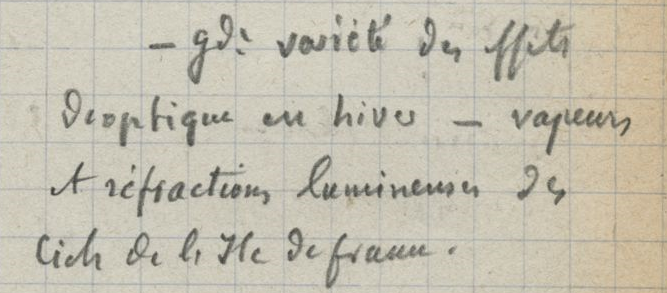 – gde variété des effets
d'optique en hiver – vapeurs
et réfractions lumineuses des
Ciels de l'Ile de france.